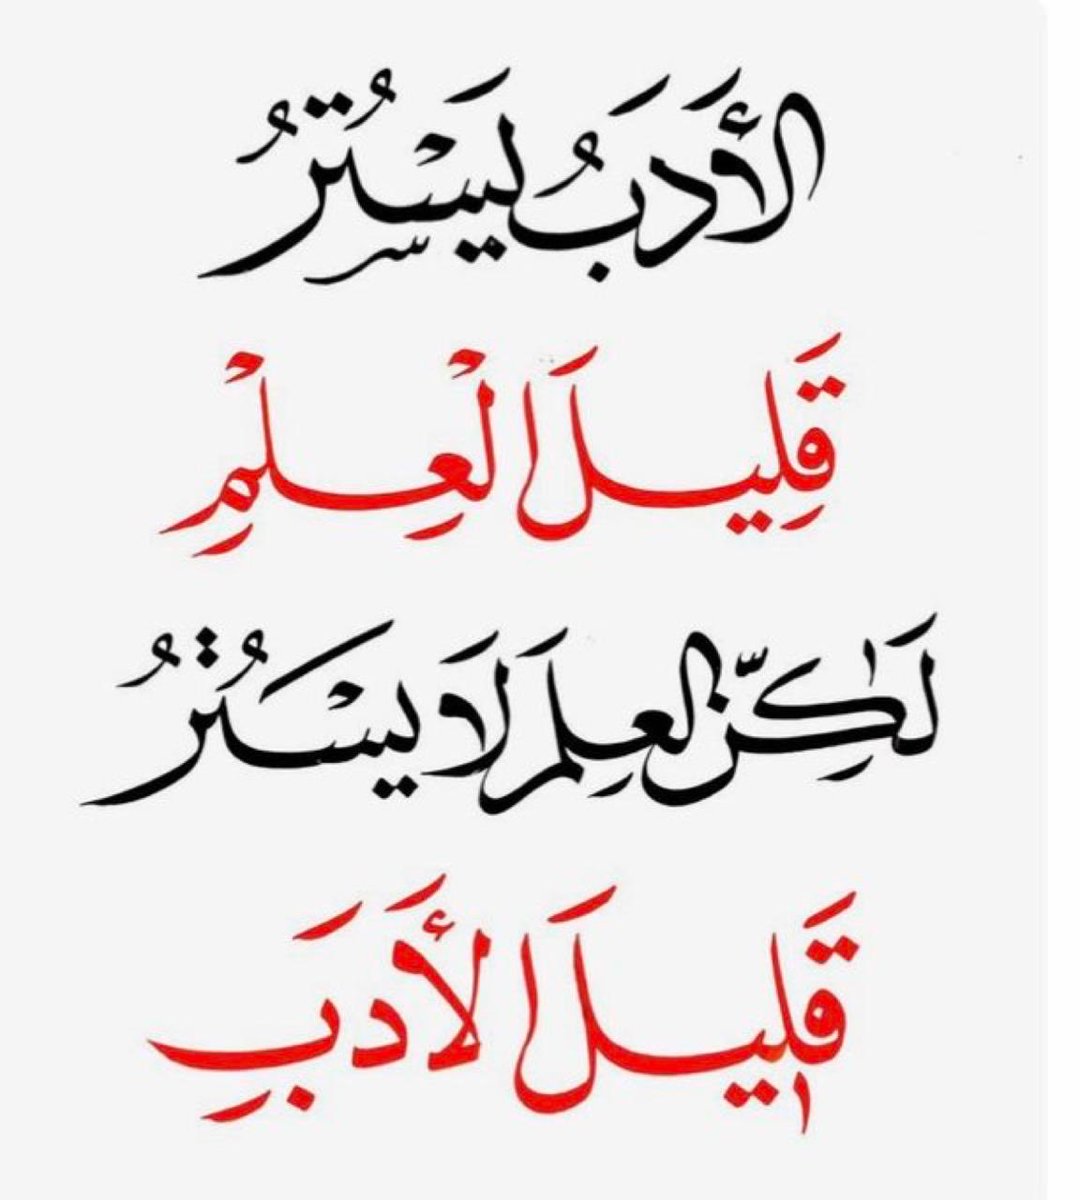 الأَدَبُ يَسْتُرُ
قَلِيلَ الْعِلْمِ
لَٰكِنَّ العِلمَ لَا يَسْتُرُ
قَلِيلَ الأَدَبِ